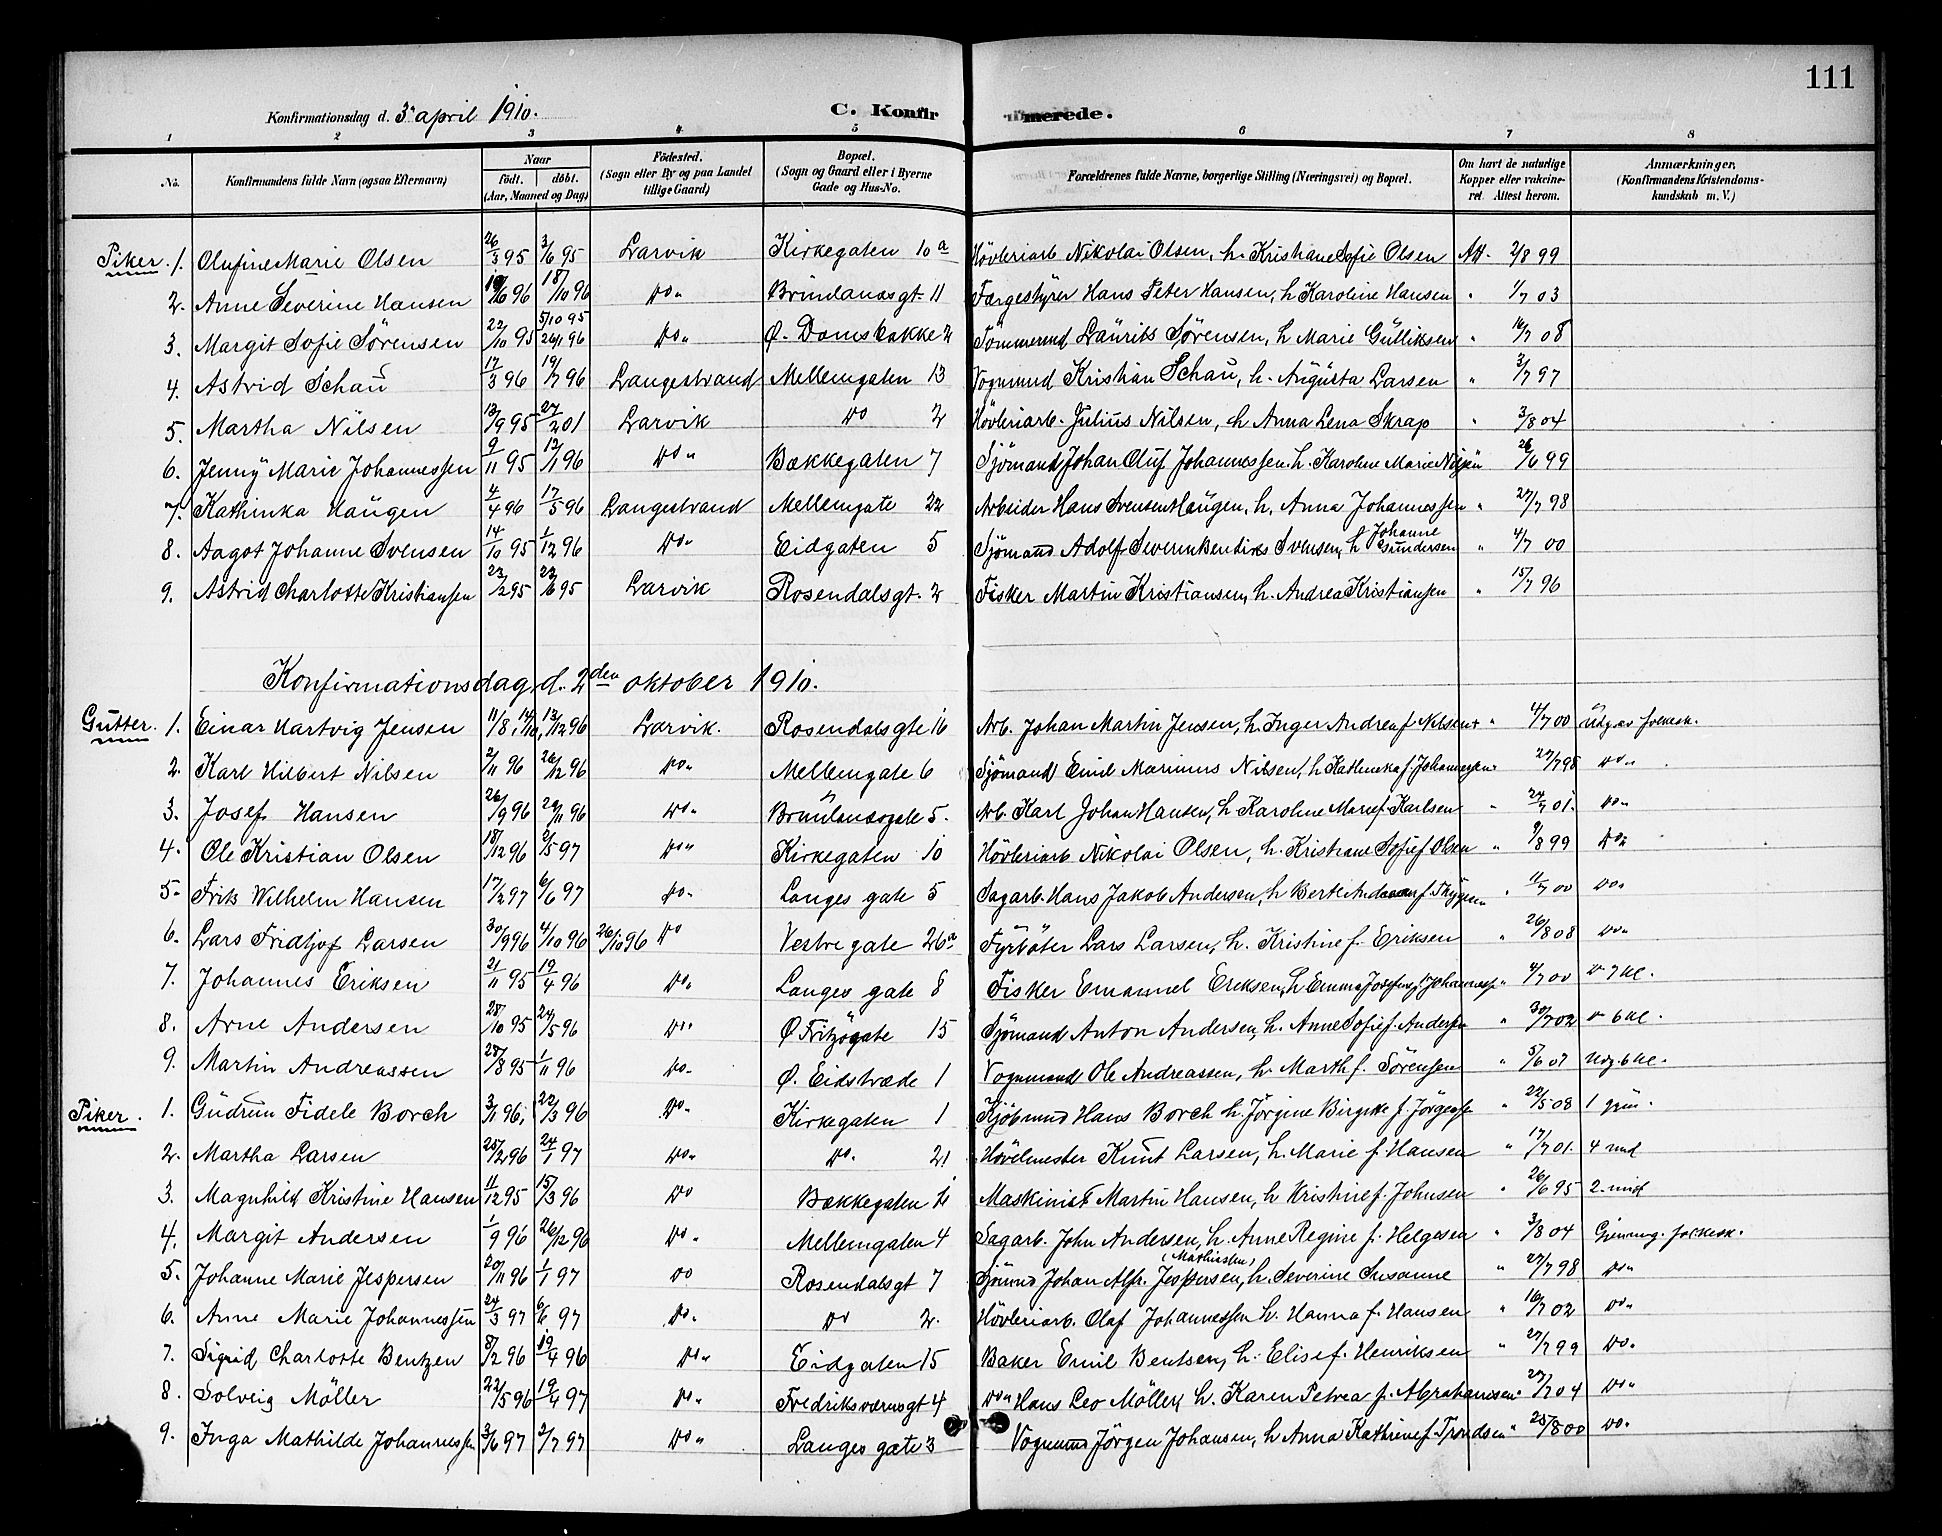 111
Konfirmationsdag d. 3' april 1910. C. Konfirmerede.
1 2 3 4 5 6 7 8
No. Konfirmandens fulde Navn (ogsaa Efternavn) Naar født. døbt. (Aar, Maaned og Dag) Fødested. (Sogn eller By og paa Landet tillige Gaard) Bopæl. (Sogn og Gaard eller i Byerne Gade og Hus-No.) Forældrenes fulde Navne, borgerlige Stilling (Næringsvei) og Bopæl. Om havt de naturlige Kopper eller vakcineret. Attest herom. Anmærkninger, (Konfirmandens Kristendomskundskab m. V.)
Piker. 1. Olufine Marie Olsen 26/3 95 3/6 95 Larvik Kirkegaten 10 a Hövleriarb. Nikolai Olsen, h. Kristiane Sofie Olsen Att. 2/8 99
2. Anne Severine Hansen 96 18/10 96 Do. Brünlanesgt. 11 Færgestyrer Hans Peter Hansen, h Karoline Hansen " 1/7 03
3. Margit Sofie Sörensen 22/10 95 5/10 95 26/1 96 Do. Ø. Damsbakke 2 Tömmermd Laurits Sørensen, h Marie Gulliksen " 16/7 08
4. Astrid Schau 17/3 96 19/7 96 Langestrand Mellemgaten 13 Vognmand Kristian Schau, h. Augusta Larsen " 3/7 97
5. Martha Nilsen 13/9 95 27/2 01 Larvik Do 2 Hövleriarb. Julius Nilsen, h Anna Lena Skrap " 3/8 04
6. Jenny Marie Johannessen 9/11 95 12/1 96 Do " Bækkegaten 7 Sjömand Johan Oluf Johannessen. h. Karoline Marie Nilsen " 26/6 99
7. Kathinka Haugen 4/4 96 17/5 96 Langestrand Mellemgate 22 Arbeider Hans Svensen Haugen, h. Anna Johannessen " 27/7 98
8. Aagot Johanne Svensen 14/10 95 1/12 96 Do. Eidgaten 5 Sjömand Adolf Severin Bendixs Svensen, h Johanne Gundersen " 4/7 00
9. Astrid Charlotte Kristiansen 22/2 95 23/6 95 Larvik Rosendalsgt. 2 Fisker Martin Kristiansen, h. Andrea Kristiansen " 15/7 96
Konfirmationsdag d. 2den oktober 1910.
Gutter. 1. Einar Hartvig Jensen 11/8, 13/12 96 Larvik. Rosendalsgte 16 Arb. Johan Martin Jensen, h. Inger Andrea f. Nilsen " 4/7 00 Udg. av folkesk.
2. Karl Hilbert Nilsen 2/11 96 26/12 96 Do. Mellemgate 6 Sjömand Emil Marinius Nilsen, h Kathinka f. Johannessen " 27/7 98 Do.
3. Josef Hansen 26/9 96 29/11 96 Do. Brünlanesgate 5. Arb. Karl Johan Hansen, h Karoline Marie f. Karlsen " 24/7 01. Do.
4. Ole Kristian Olsen 18/12 96 2/5 97 Do. Kirkegaten 10 Hövleriarb. Nikolai Olsen, h. Kristiane Sofie f Olsen " 9/8 99 Do.
5. Frits Wilhelm Hansen 17/2 97 6/6 97 Do. Langes gate 5 Sagarb. Hans Jakob Andersen, h Berte f. " 11/7 00 Do.
6. Lars Fridtjof Larsen 30/9 96 4/10 96 26/10 96 Do Vestre gate 26a Fyrböter Lars Larsen, h. Kristine f. Eriksen " 26/8 08 Do.
7. Johannes Eriksen 21/11 95 19/4 96 Do. Langes gate 8 Fisker Emanuel Eriksen, h Emma Josefine f. Johannessen " 4/7 00 7 kl.
8. Arne Andersen 28/10 95 24/5 96 Do. Ø Fritzögate 15 Sjömand Anton Andersen, h. Anne Sofie f. Andersen " 30/7 02 6 kl.
9. Martin Andreassen 28/8 95 1/11 96 Do. Ø. Eidstræde 1 Vognmand Ole Andreassen, h. Marth f. Sörensen " 5/6 07 Udg. 6 kl.
Piker. 1. Gudrun Fidele Borch 3/1 96, 22/3 96 Do. Kirkegaten 1 Kjöbmand Hans Borch h. Jörgine Birgitte f. Jörgensen " 22/5 08 1 gym.
2. Martha Larsen 25/2 96 24/1 97 Do. Do. 21 Hövelmester Knut Larsen, h. Marie f Hansen " 17/7 01. 4 mid
3. Magnhild Kristine Hansen 11/12 95 15/3 96 Do Bækkegaten 11 Maskinist Martin Hansen, h Kristine f. Johnsen " 26/6 95 2. mid
4. Margit Andersen 1/9 96 26/12 96 Do. Mellemgaten 4 Sagarb. John Andersen, h. Anne Regine f. Helgesen " 3/8 04 Gjenneng. folkesk.
5. Johanne Marie Jespersen 20/11 96 1/1 97 Do Rosendalsgt 7 Sjömand Johan Alfr. Jespersen, h. Severine Susanne (Mathisdtr) " 27/7 98 Do.
6. Anne Marie Johannessen 24/3 97 6/6 97 Do. Do 2. Hövleriarb. Olaf Johannessen h. Hanna f. Hansen " 16/7 02 Do.
7. Sigrid Charlotte Bentzen 8/2 96 19/4 96 Do. Eidgaten 15 Baker Emil Bentsen, h. Elise f. Henriksen " 27/7 99 Do.
8. Solveig Möller 22/5 96 19/4 97 Do. Fredriksværnsgt 4 Do. Hans Leo Möller, h. Karen Petrea f. Abrahamsen " 27/7 04 Do.
9. Inga Mathilde Johannessen 3/6 97 2/7 97 Do. Langes gate 3 Vognmand Jörgen Johansen, h Anna Kathrine f Trondsen " 25/8 00 Do.